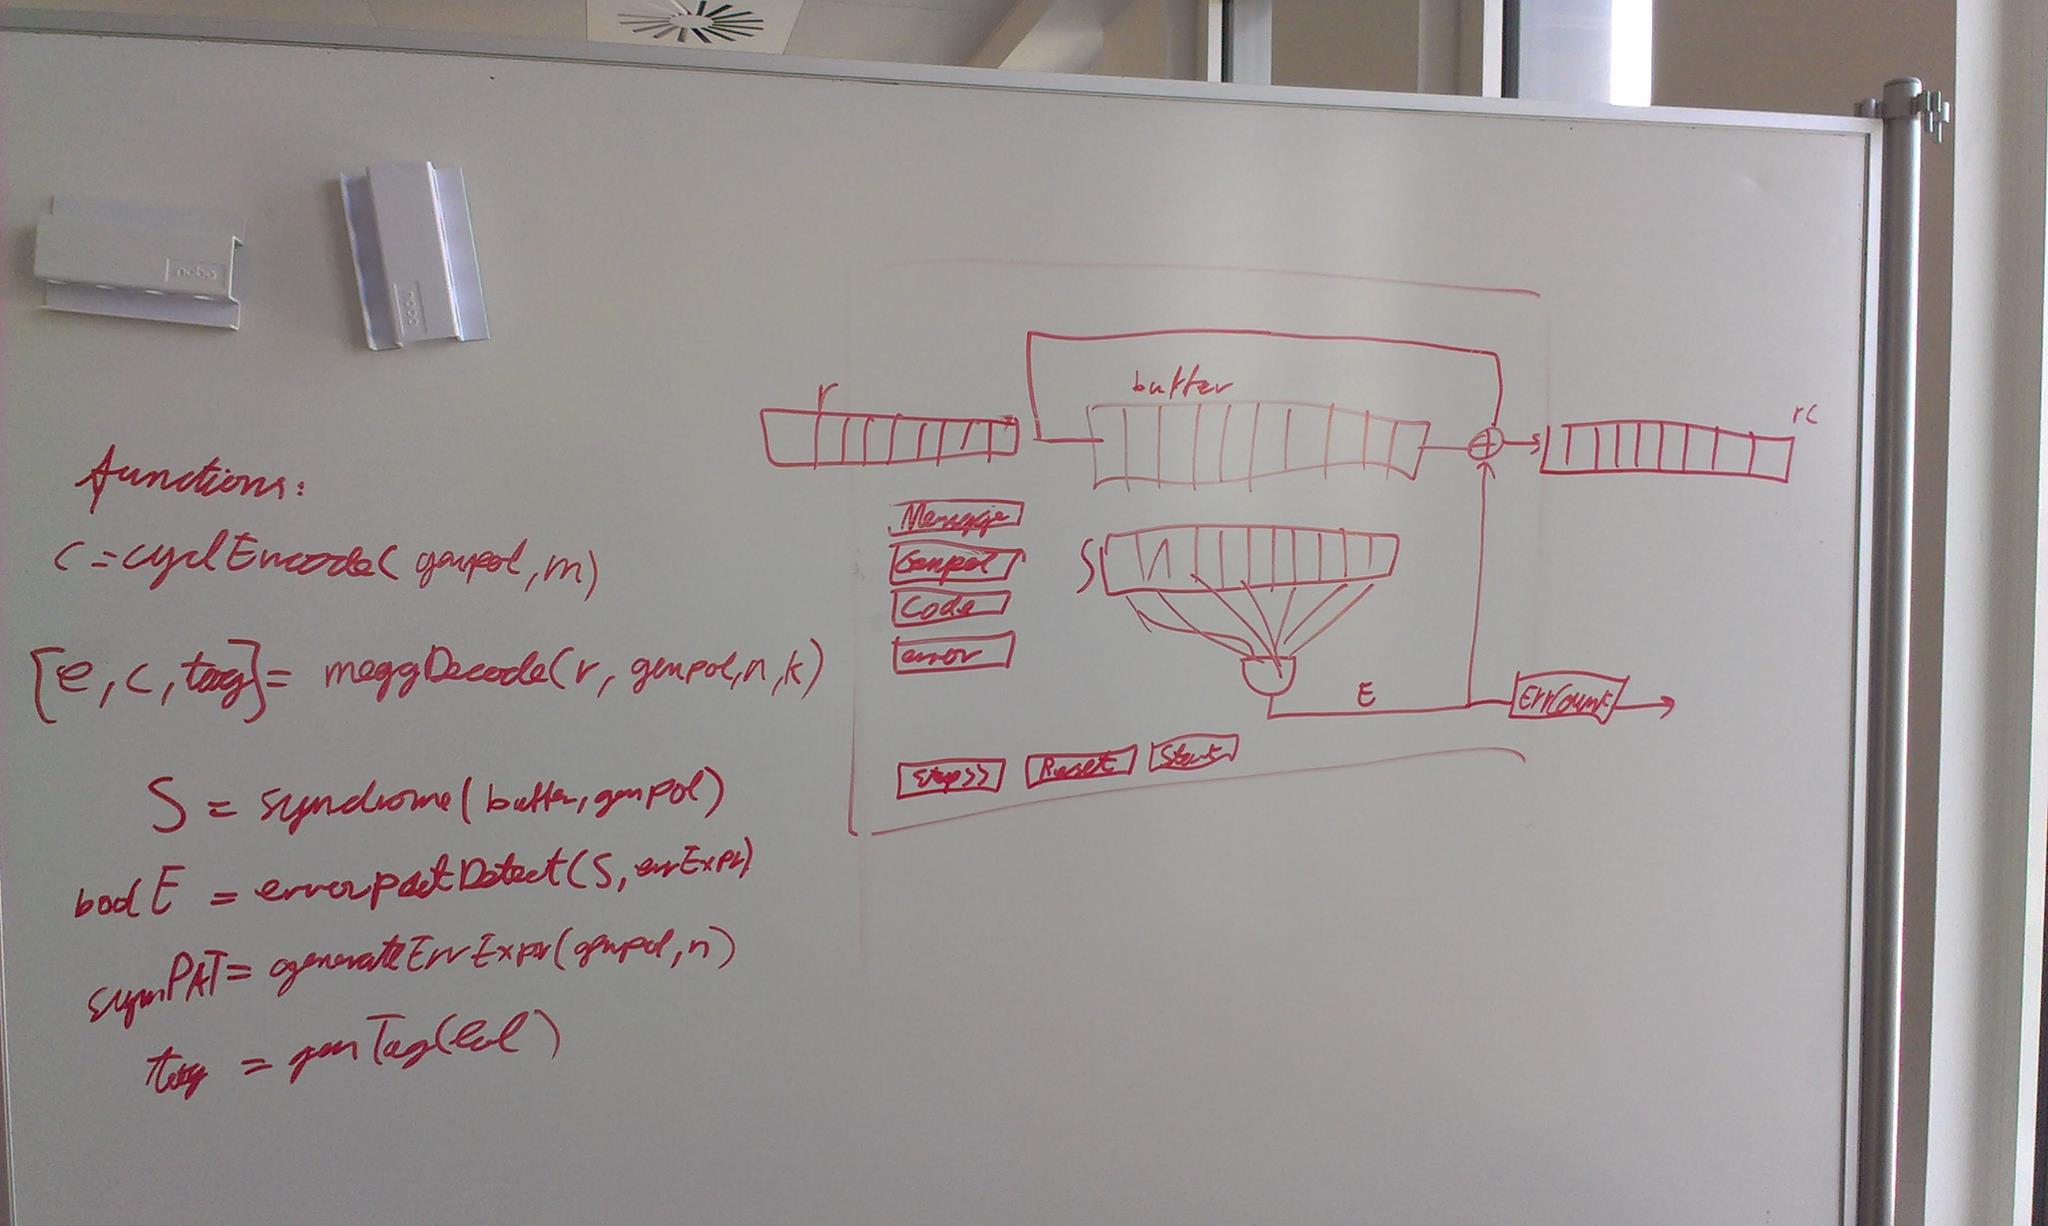 nobo
nobo
functions:
c = cyclEncode(genpol, m)
[e, c, tag] = meggDecode(r, genpol, n, k)
S = syndrome(buffer, genpol)
bool E = errorpatDetect(S, errExpr)
synPAT = generateErrExpr(genpol, n)
tag = genTag(
r
buffer
+
rc
Message
Genpol
Code
error
S
E
ErrCount
Step>>
Reset
Start